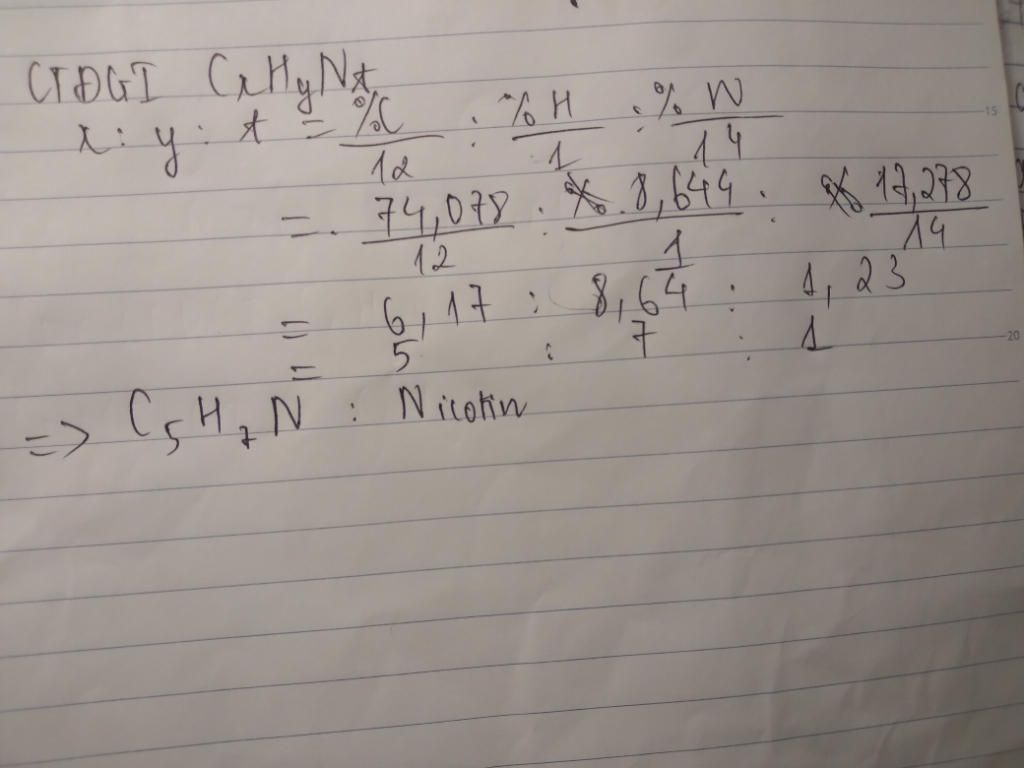 CTĐGI CxHyNt
x : y : t = %C/12 : %H/1 : %N/14
= 74,078/12 : 8,644/1 : 17,278/14
= 6,17 : 8,64 : 1,23
= 5 : 7 : 1
=> C5H7N : Nicotin
15
20